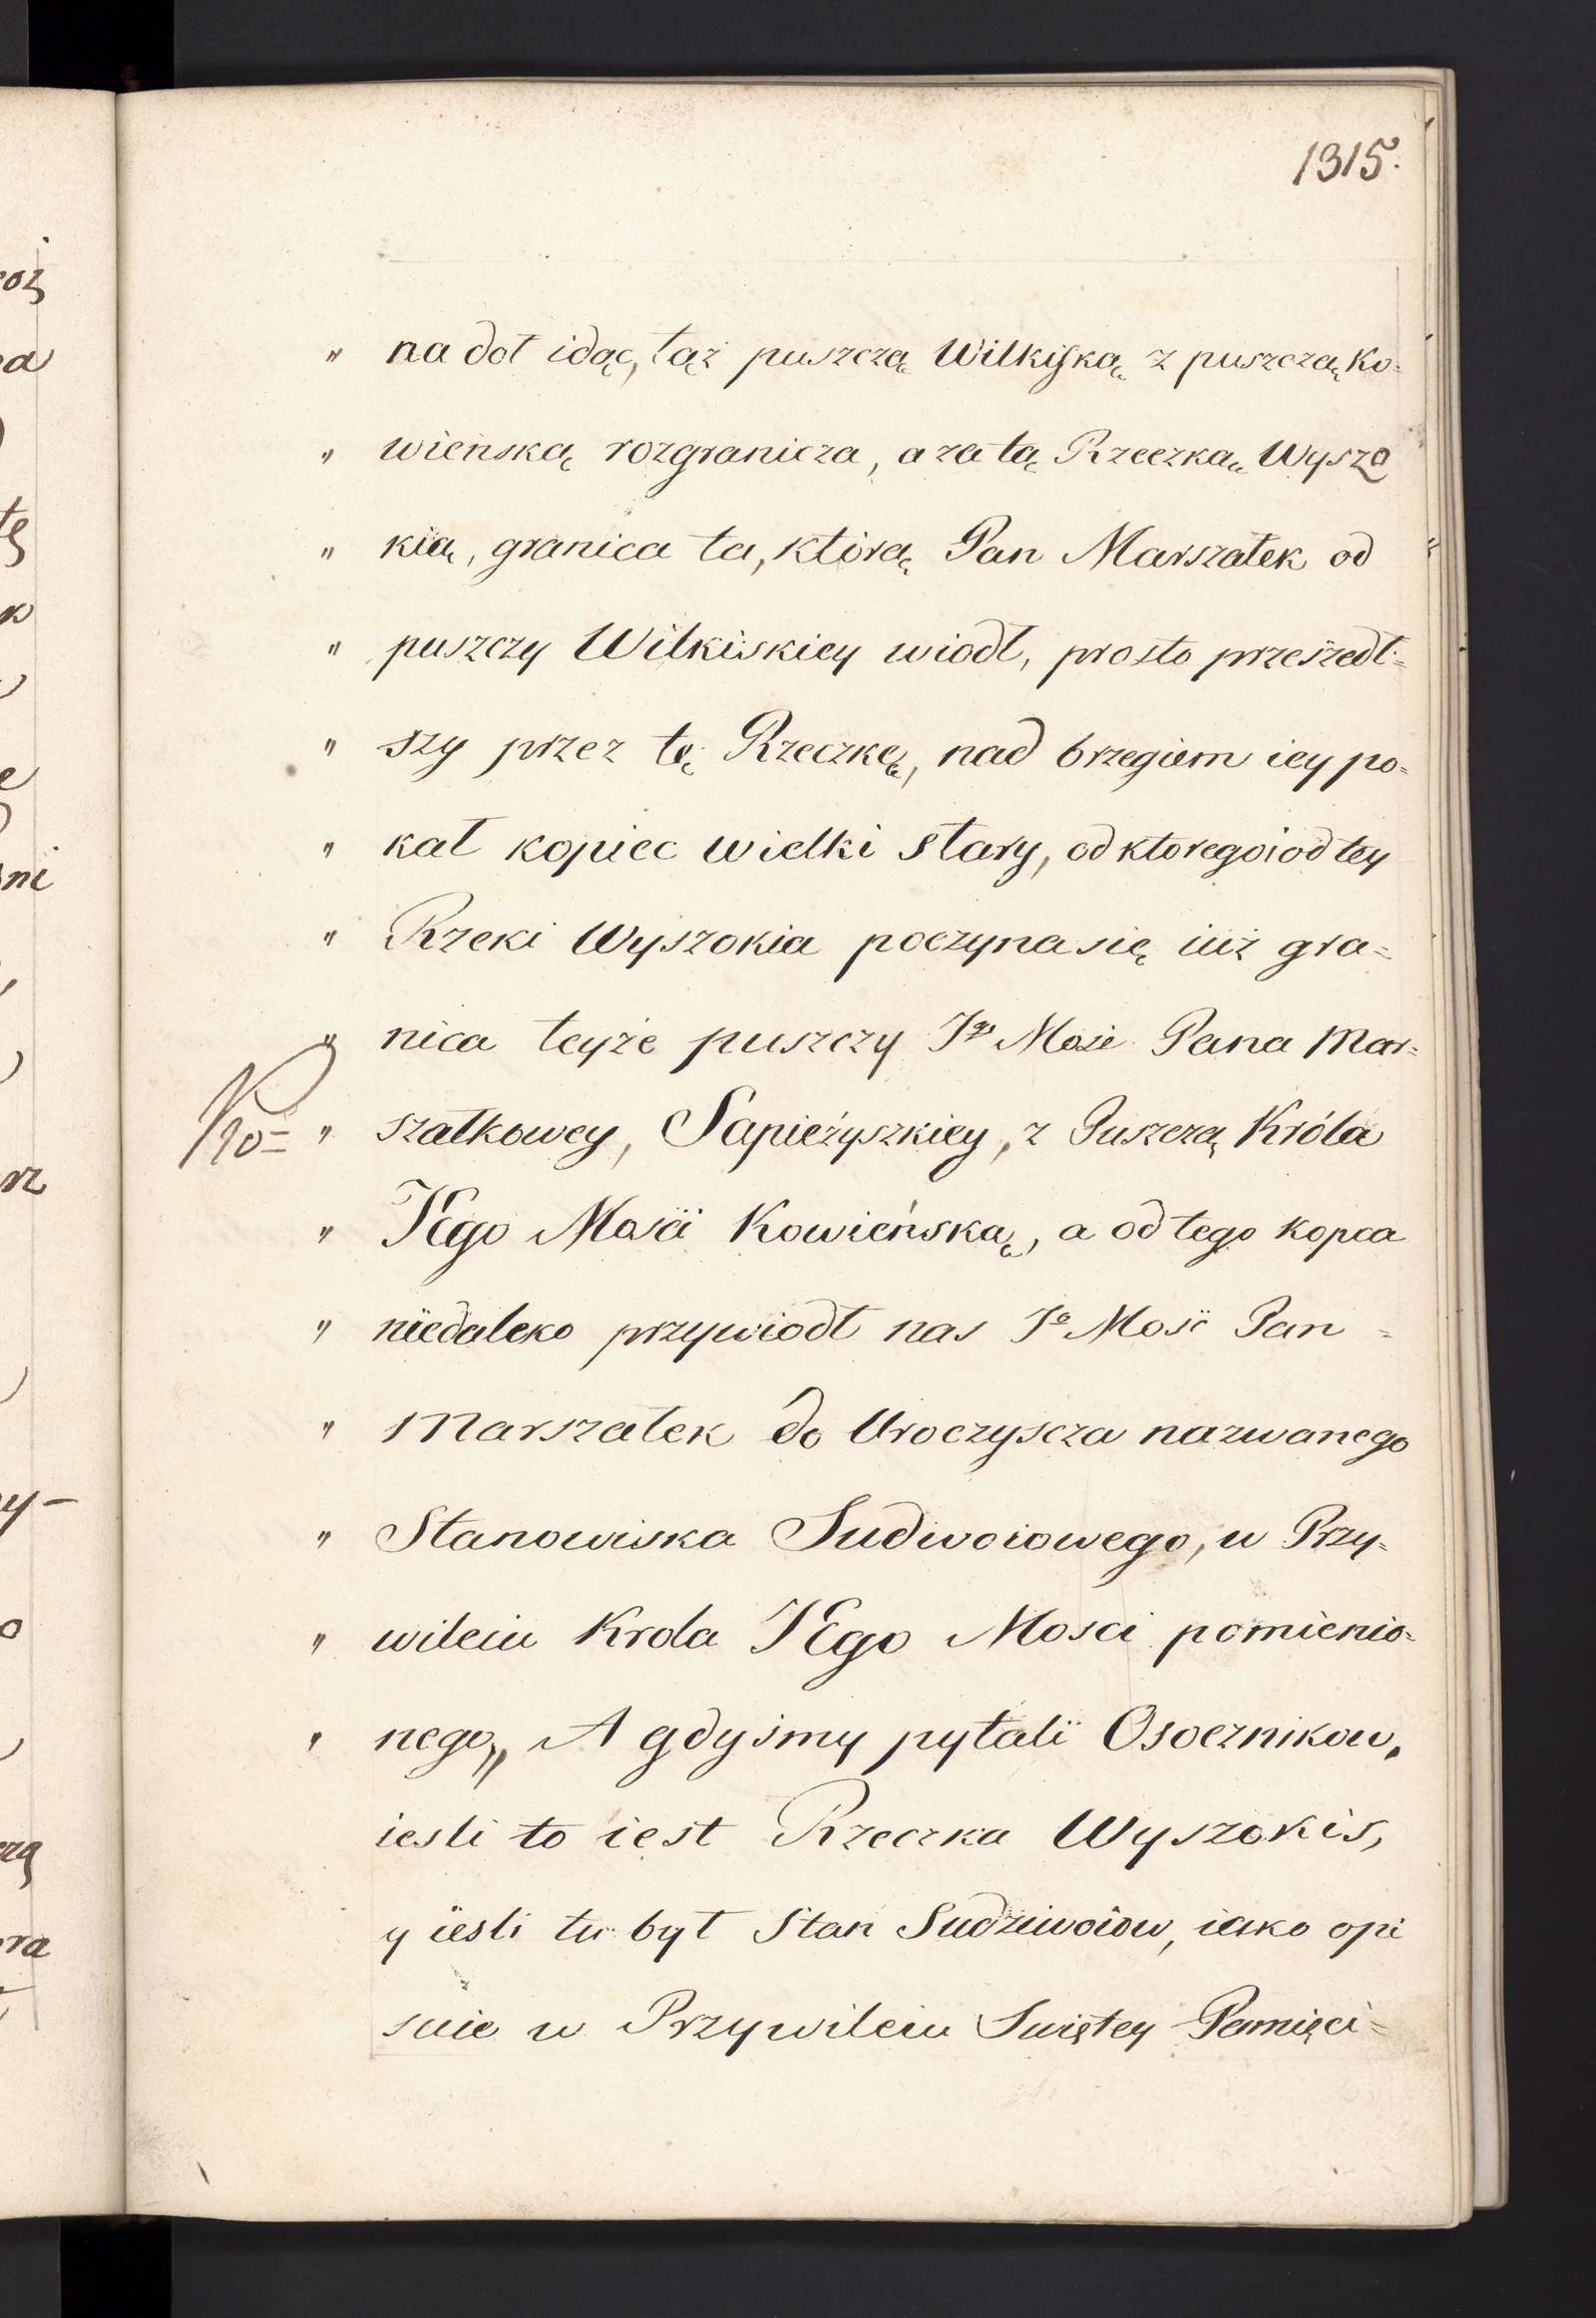 1315.
" na dół idąc, tąż puszczą Wilkiską z puszczą Ko=
" wieńską rozgranicza, a za tą Rzeczką Wyszo
" kią, granica ta, którą Pan Marszałek od
" puszczy Wilkiskiey wiodł, prosto przeszedł=
" szy przez tę Rzeczkę, nad brzegiem iey po=
" kał kopiec wielki stary, od ktorego i od tey
" Rzeki Wyszokia poczyna się iuż gra=
" nica teyże puszczy Jgo Mości Pana Mar=
" szałkowey, Sapieżyszkiey, z Puszczą Króla
" JEgo Mości Kowieńską, a od tego kopca
" niedaleko przywiodł nas Jo Mość Pan =
" Marszałek do Uroczyscza nazwanego
" Stanowiska Sudiwoiowego, w Przy=
" wileiu Krola JEgo Mosci pomienio=
" nego„ A gdyśmy pytali Osocznikow,
iesli to iest Rzeczka Wyszokis,
y iesli tu był Stan Sudziwoiow, iako opi
suie w Przywileiu Swiętey Pamięci=